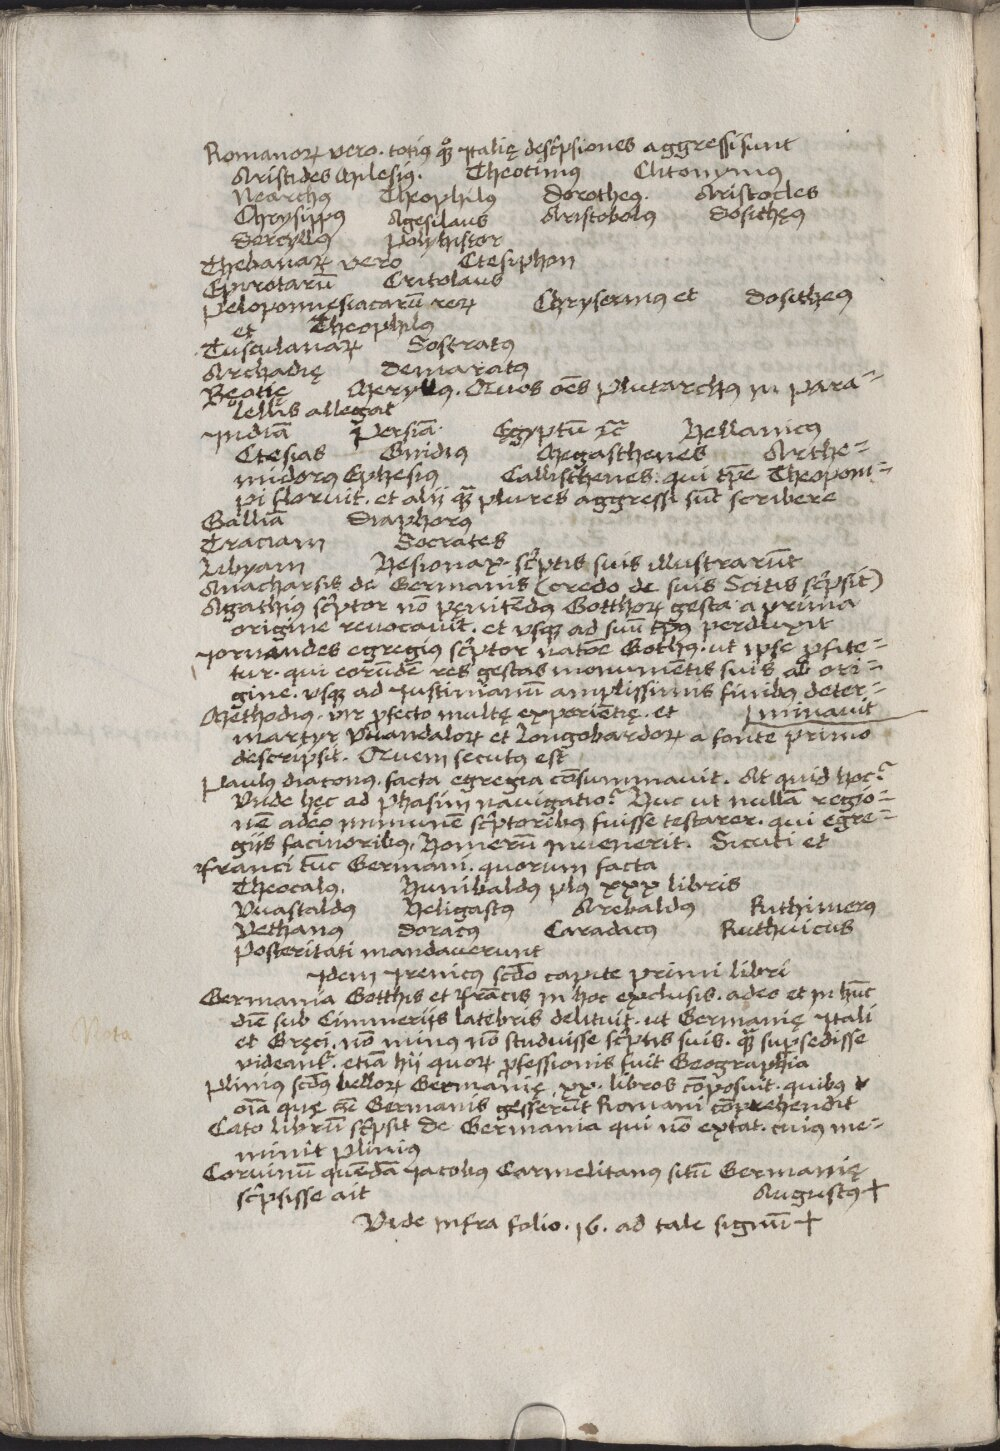 Romanorꝝ vero. totiꝯ qꝫ Italię descͥpsiones aggressi sunt
Aristides Milesiꝯ. Theotimꝯ Clitonymꝯ
Nearchꝯ Theophilꝯ Dorotheꝯ. Aristocles
Chrysippꝯ Agesilaus Aristobolꝯ Dosithęꝯ
Dercyllꝯ Polyhistor
Thebanarꝝ vero Ctesiphon
Epirotarū Critolaus
Peloponnesiacarū rerꝝ Chrysermꝯ et Dositheꝯ
et Theophilꝯ
Tusculanarꝝ Sostratꝯ
Archadię Demaratꝯ
Bęotię Meryllꝯ. Quos oēs Plutarchꝯ in para-
lellis allegat
Indiā Persiā. Egyptū ⁊c̄ Hellanicꝯ
Ctesias Gnidiꝯ Megasthenes Arthe-
midorꝯ Ephesiꝯ Callisthenes. qui tp̄e Theopom-
pi floruit. et alij qꝫ̄ plures aggressi sūt scribere
Galliā Diaphorꝯ
Traciam Socrates
Libyam Hesionax scͥptis suis illustrarūt
Anacharsis de Germanis (credo de suis Scitis scͥpsit)
Agathiꝯ scͥptor nō penitēdꝯ Gotthorꝝ gesta a prima
origine revocavit. et vsqꝫ ad suū tp̄ꝯ perduxit
Iornandes egregiꝯ scͥptor natōe Gothꝯ. ut ipse ꝓfite-
tur. qui eorundē res gestas monumētis suis ab ori-
gine. vsqꝫ ad Iustinianū amplissimis finibꝯ deter-
Methodiꝯ. vir ꝓfecto multę experiētię. et minavit
martyr Vuandalorꝝ et Longobardorꝝ a fonte primo
descripsit. Quem secutꝯ est
Paulꝯ diaconꝯ. facta egregia cōsummavit. At quid hoc?
Vnde hęc ad Phasim navigatio? Huc ut nullā regio-
nē adeo immunē scͥptoribꝯ fuisse testarer. qui egre-
gijs facinoribꝯ, Homerū invenerit. Sicuti et
Franci tūc Germani. quorum facta
Theocalꝯ, Hunibaldꝯ plꝯ xxx libris
Vuastaldꝯ Heligastꝯ Arebaldꝯ Ruthimerꝯ
Vethanꝯ Doracꝯ Caradacꝯ Ruthuicus
Posteritati mandaverunt
Idem Irenicꝯ scd̄o capite primi libri
Germania Gotthis et Frācis in hoc exclusis. adeo et in hūc
diē sub Cimmerijs latebris delituit. ut Germanię Itali
et Gręci. nō minꝯ nō studuisse scͥptis suis. qꝫ̄ supsedisse
videant͛. etiā hij quorꝝ ꝓfessionis fuit Geographia
Pliniꝯ scd̄ꝯ bellorꝝ Germanię xx. libros cōposuit. quibꝯ
oīa quę cū Germanis gesserūt Romani cōprehendit
Cato librū scͥpsit de Germania qui nō extat. cuiꝯ me-
minit Pliniꝯ
Corvinū quendā Iacobꝯ Carmelitanꝯ sitū Germanię
scͥpsisse ait Augustꝯ +
Vide infra folio. 16. ad tale signū +
Nota